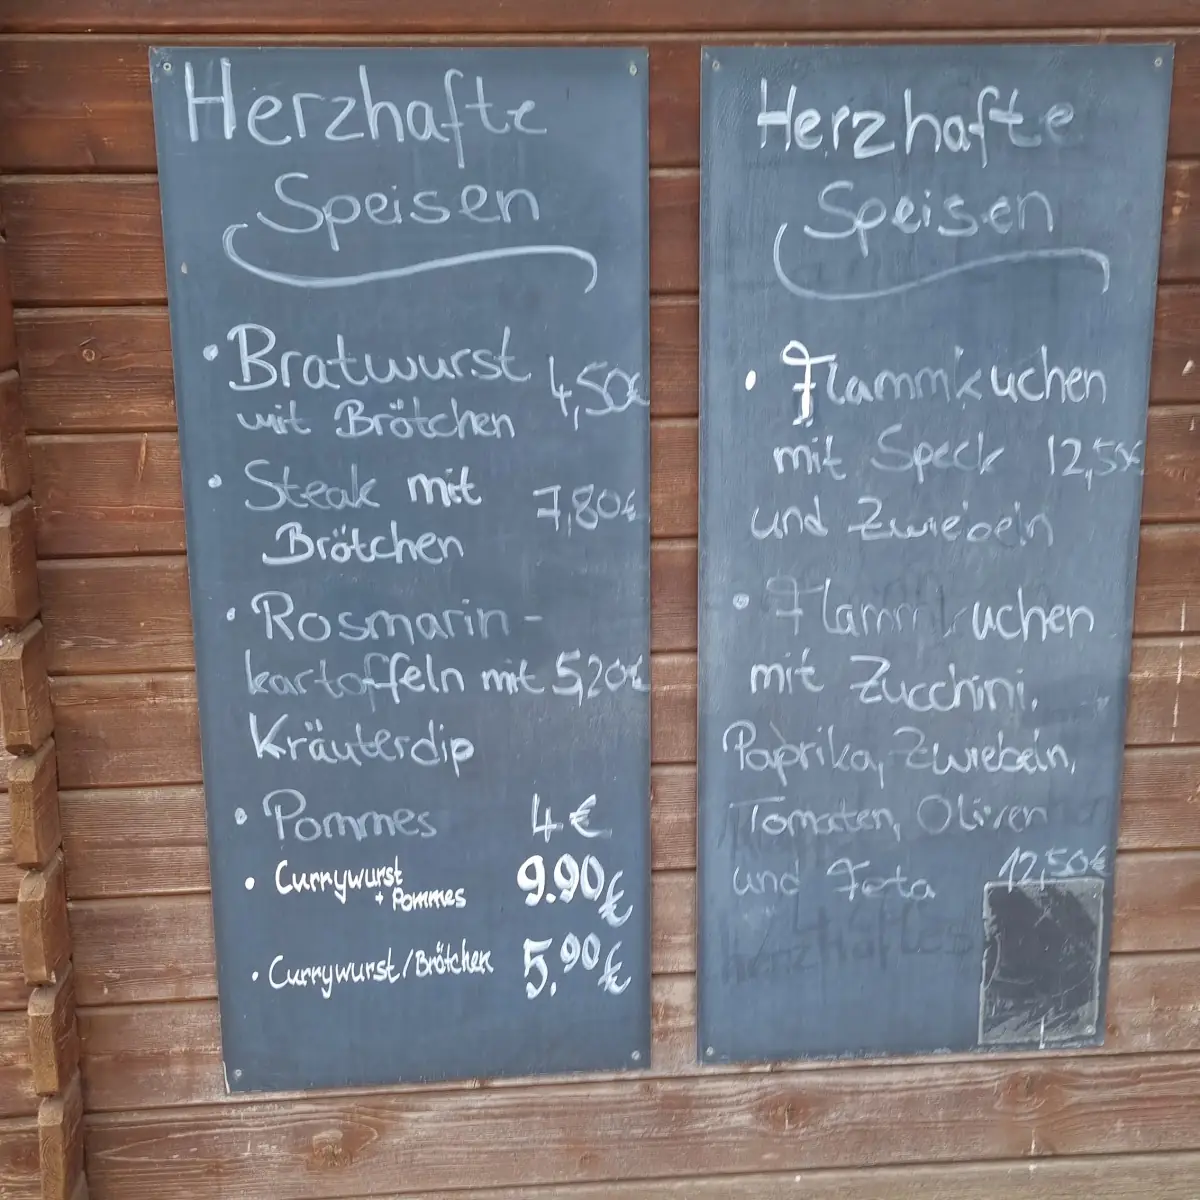 Herzhafte
Speisen
• Bratwurst 4,50€
mit Brötchen
• Steak mit 7,80€
Brötchen
• Rosmarin-
kartoffeln mit 5,20€
Kräuterdip
• Pommes 4€
• Currywurst 9.90€
+ Pommes
• Currywurst/Brötchen 5.90€
Herzhafte
Speisen
• Flammkuchen
mit Speck 12,50€
und Zwiebeln
• Flammkuchen
mit Zucchini,
Paprika, Zwiebeln,
Tomaten, Oliven
und Feta 12,50€
herzhaftes